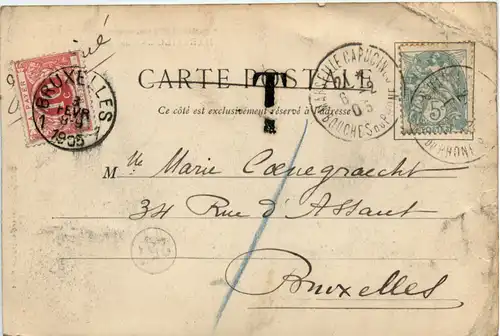 CARTE POSTALE
T
Ce côté est exclusivement réservé à l'adresse
BRUXELLES
FEVR
1905
MARSEILLE CAPUCINES
BOUCHES DU RHONE
5c
DU RHONE
Mlle Marie Coenegraecht
34 Rue d'Assaut
Bruxelles